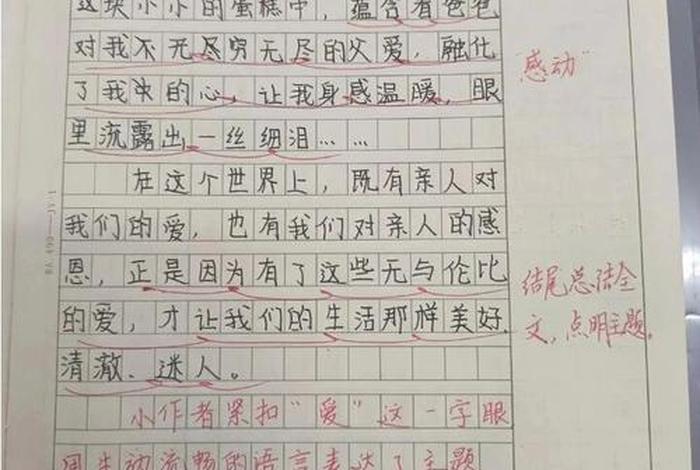 这块小小的蛋糕中，蕴含着爸爸
对我不无尽穷无尽的父爱，融化
了我的心，让我身感温暖，眼
里流露出一丝细泪……
在这个世界上，既有亲人对
我们的爱，也有我们对亲人的感
恩，正是因为有了这些无与伦比
的爱，才让我们的生活那样美好、
清澈、迷人。
"感动"
结尾总结全
文，点明主题。
小作者紧扣"爱"这一字眼
用生动流畅的语言表达了主题